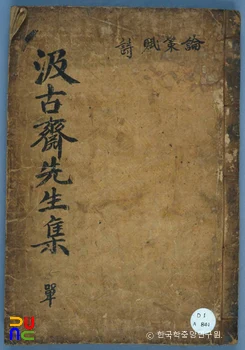 汲古齋先生集
單
詩 賦 策 論
D I
A 801
한국학중앙연구원